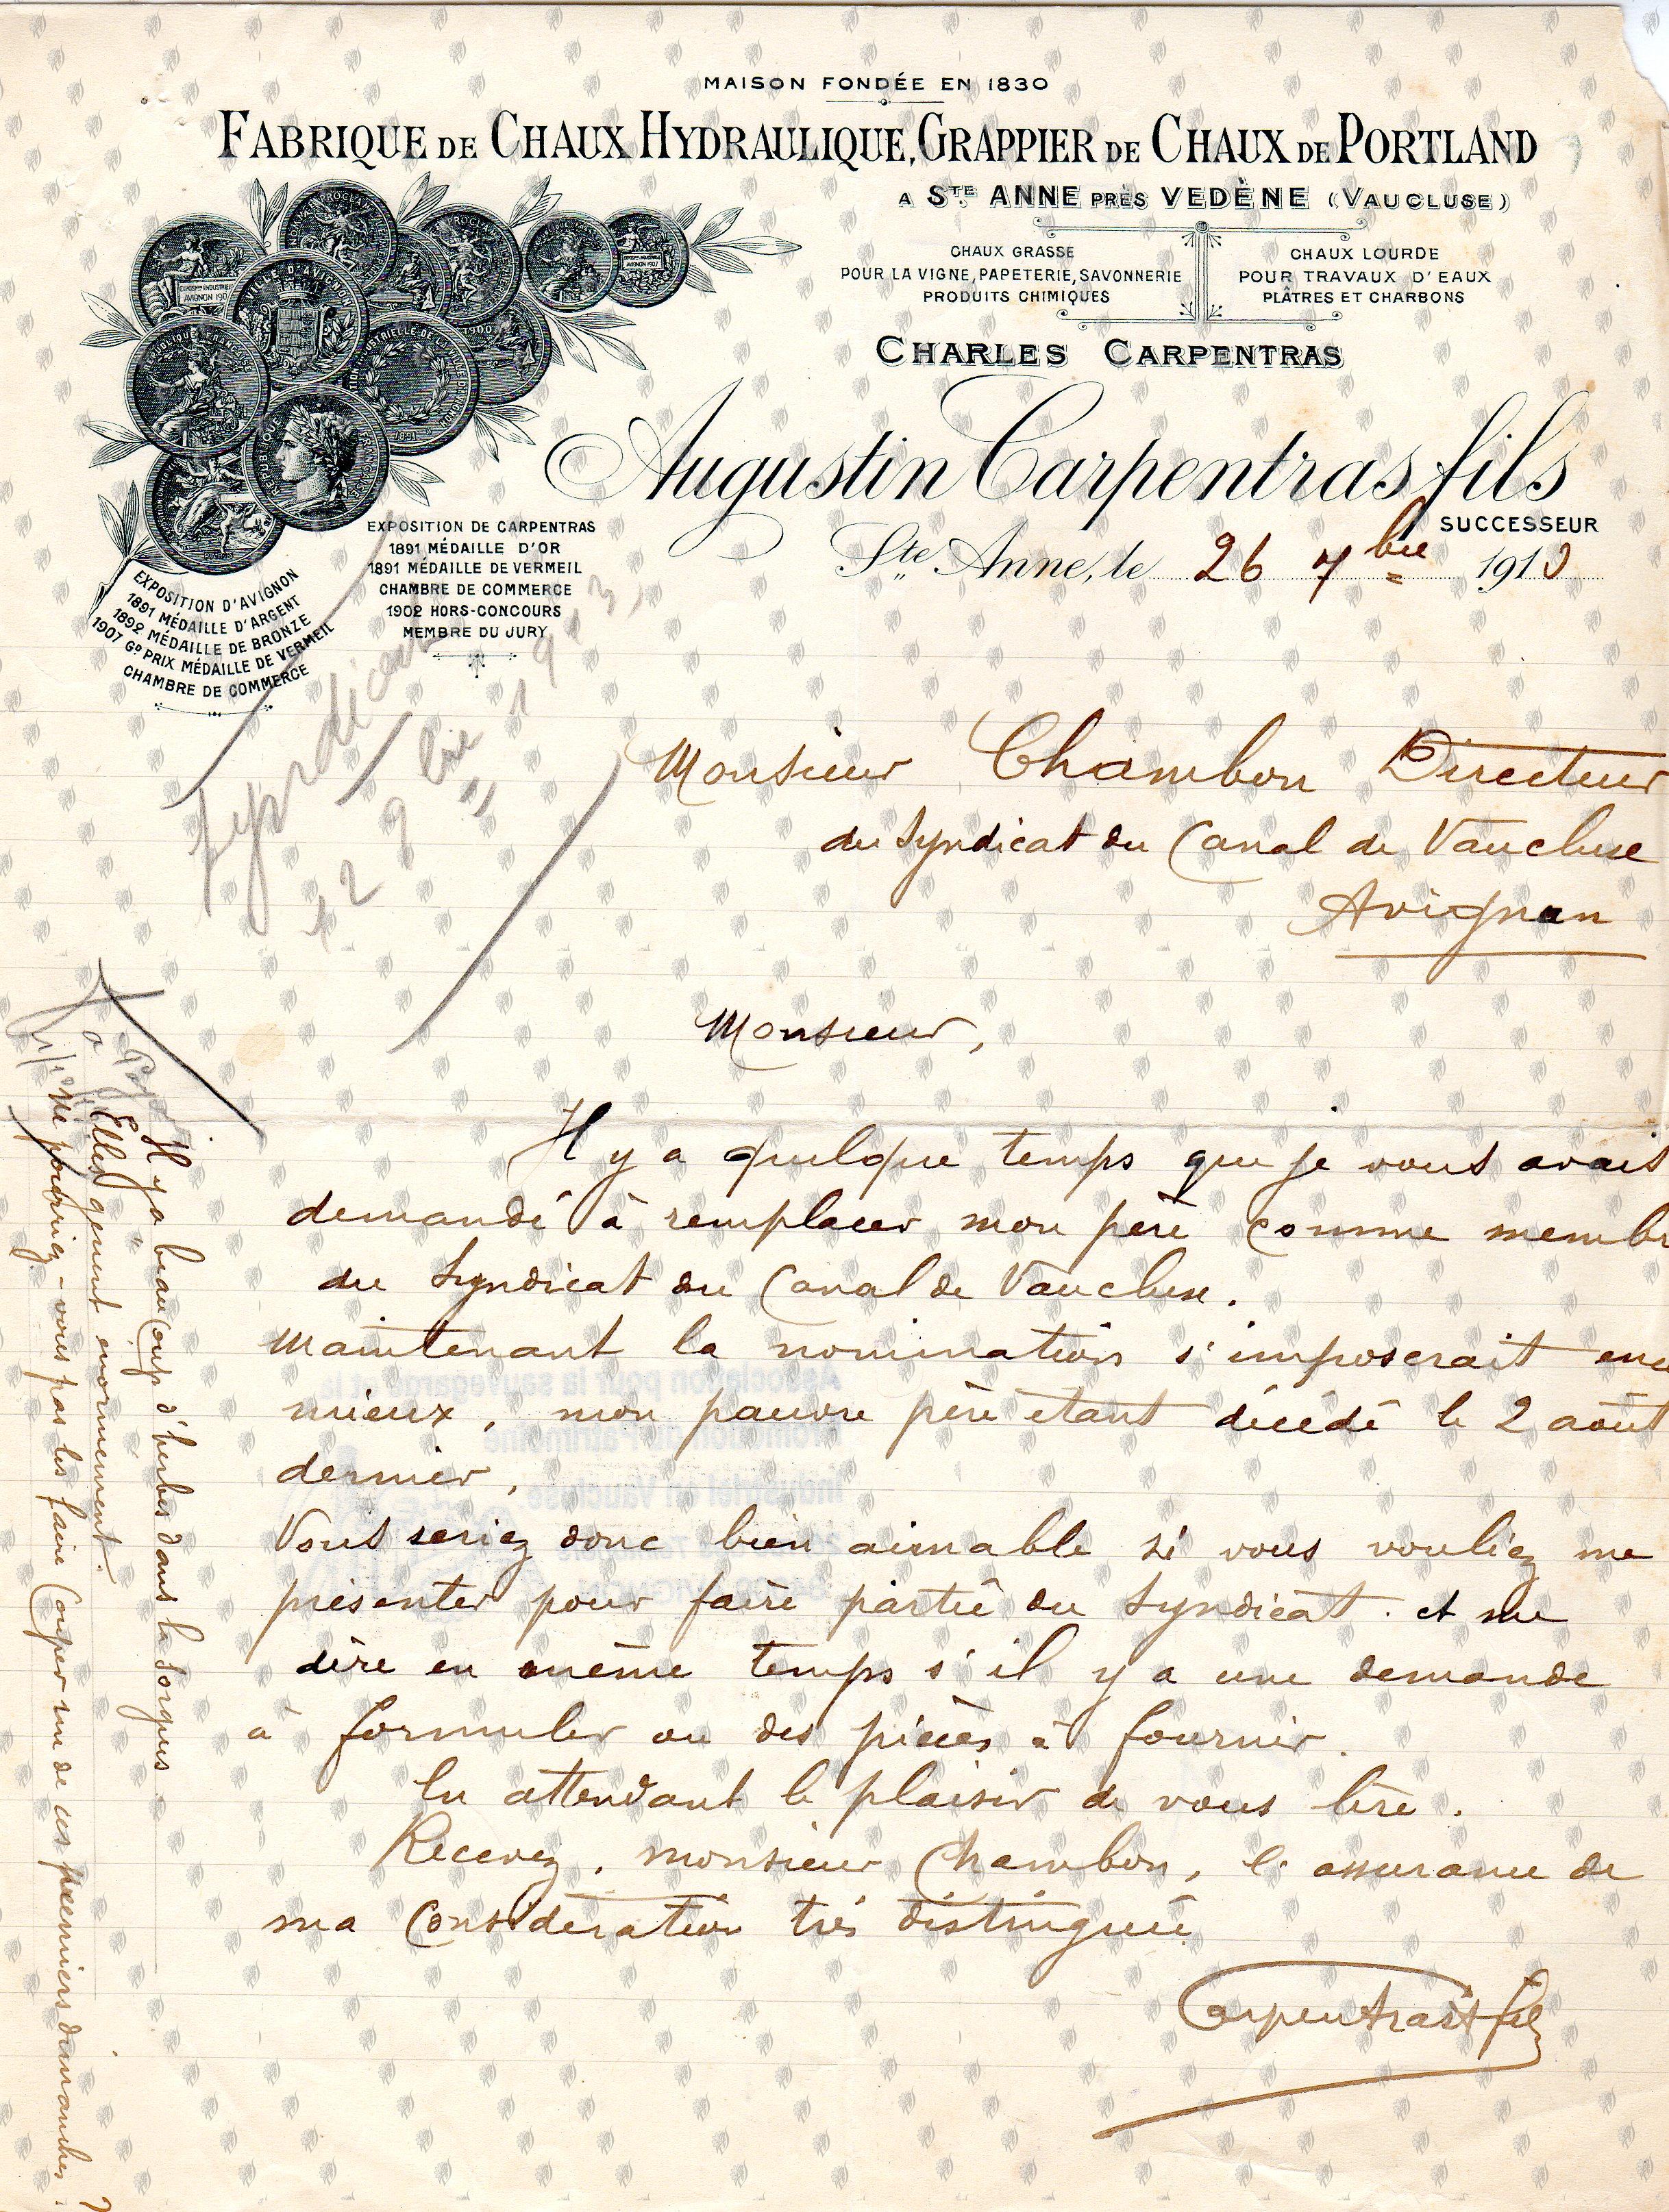 MAISON FONDÉE EN 1830
FABRIQUE DE CHAUX HYDRAULIQUE, GRAPPIER DE CHAUX DE PORTLAND
A STE ANNE PRÈS VEDÈNE (VAUCLUSE)
CHAUX GRASSE
POUR LA VIGNE, PAPETERIE, SAVONNERIE
PRODUITS CHIMIQUES
CHAUX LOURDE
POUR TRAVAUX D'EAUX
PLÂTRES ET CHARBONS
CHARLES CARPENTRAS
Augustin Carpentras fils
SUCCESSEUR
VILLE D'AVIGNON
REPUBLIQUE FRANÇAISE
REPUBLIQUE FRANÇAISE
1900
1891
EXPOSITION DE CARPENTRAS
1891 MÉDAILLE D'OR
1891 MÉDAILLE DE VERMEIL
CHAMBRE DE COMMERCE
1902 HORS-CONCOURS
MEMBRE DU JURY
EXPOSITION D'AVIGNON
1891 MÉDAILLE D'ARGENT
1892 MÉDAILLE DE BRONZE
1907 GD PRIX MÉDAILLE DE VERMEIL
CHAMBRE DE COMMERCE
Ste Anne, le 26 7bre 1913
Syndicat
12 9bre 1913
Monsieur Chambon Directeur
du Syndicat du Canal de Vaucluse
Avignon
Monsieur,
Il y a quelque temps que je vous avais
demandé à remplacer mon père comme membr
du Syndicat du Canal de Vaucluse.
Maintenant la nomination s'imposerait enc
mieux, mon pauvre père étant décédé le 2 août
dernier.
Vous seriez donc bien aimable si vous vouliez me
présenter pour faire partie du Syndicat. et me
dire en même temps s'il y a une demande
à formuler ou des pièces à fournir.
En attendant le plaisir de vous lire.
Recevez, monsieur Chambon, l'assurance de
ma Considération très distinguée
Carpentras fils
Il y a beaucoup d'herbes dans la Sorgues
Elles gênent énormément.
Ne pourriez-vous pas les faire Couper un de ces premiers dimanches ?